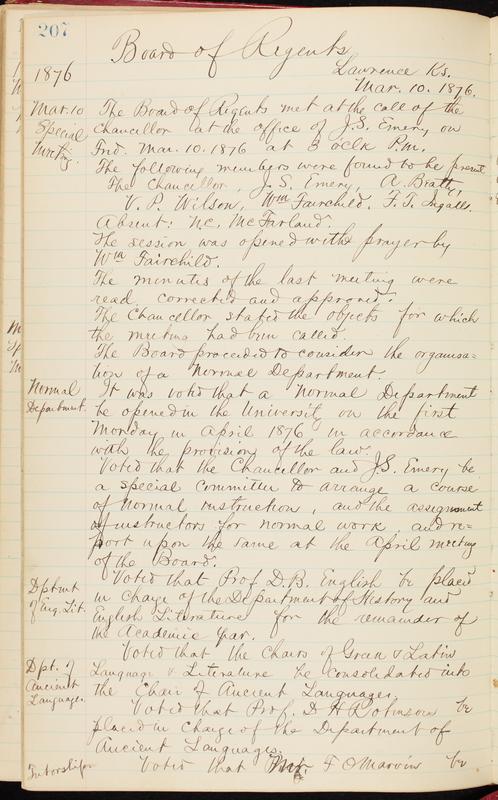 207
Board of Regents
1876
Lawrence Ks.
Mar. 10. 1876.
Mar. 10
Special
Meeting.
The Board of Regents met at the call of the
Chancellor at the office of J.S. Emery on
Frid. Mar. 10. 1876 at 3 oclk P.m.
The following members were found to be present.
The Chancellor, J. S. Emery, A.
V. P. Wilson, Wm Fairchild. F. T. Ingalls.
Absent: N.C. McFarland.
The session was opened with prayer by
Wm Fairchild.
The minutes of the last meeting were
read, corrected and approved.
The Chancellor stated the objects for which
the meeting had been called.
The Board proceeded to consider the organiza-
tion of a Normal Department.
Normal
Department.
It was voted that a Normal Department
be opened in the University on the first
Monday in April 1876 in accordance
with the provisions of the law.
Voted that the Chancellor and J.S. Emery be
a special committee to arrange a course
of normal instruction, and the assignment
of instructors for normal work, and re=
port upon the same at the April meeting
of the Board.
Dptmnt
of Eng. Lit.
Voted that Prof. D.B. English be placed
in charge of the Department of History and
English Literature for the remainder of
the Academic year.
Dpt. of
Ancient
Languages.
Voted that the Chairs of Greek & Latin
Language & Literature be consolidated into
the Chair of Ancient Languages.
Voted that Prof. D H Robinson be
placed in charge of the Department of
Ancient Languages.
Tutorship
Voted that F O Marvin be